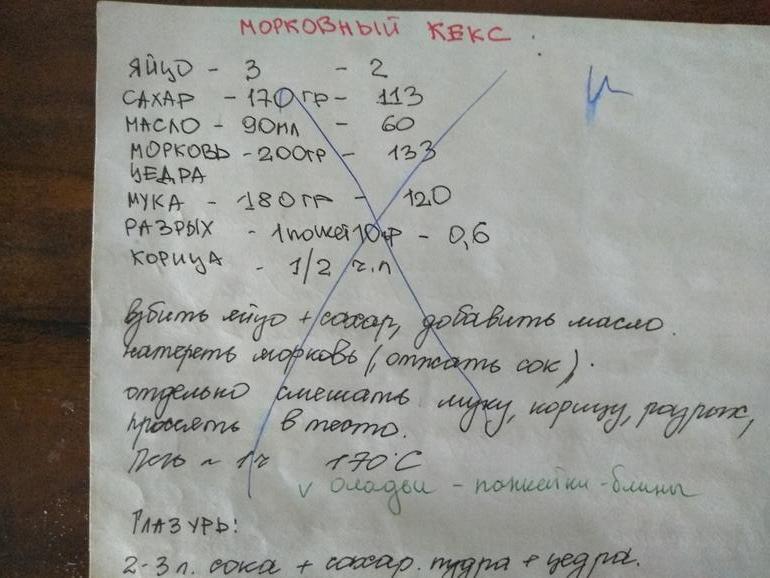 МОРКОВНЫЙ КЕКС :
ЯЙЦО - 3 - 2
САХАР - 170 гр - 113
МАСЛО - 90мл - 60
МОРКОВЬ - 200гр - 133
ЦЕДРА
МУКА - 180 гр - 120
РАЗРЫХ - 1 пакет 10гр - 0,6
КОРИЦА - 1/2 ч.л
взбить яйцо + сахар, добавить масло.
натереть морковь (отжать сок).
отдельно смешать муку, корицу, разрых,
просеять в тесто.
Печь ~ 1ч 170°C
v оладьи - панкейки - блины
ГЛАЗУРЬ:
2-3 л. сока + сахар. пудра + цедра.